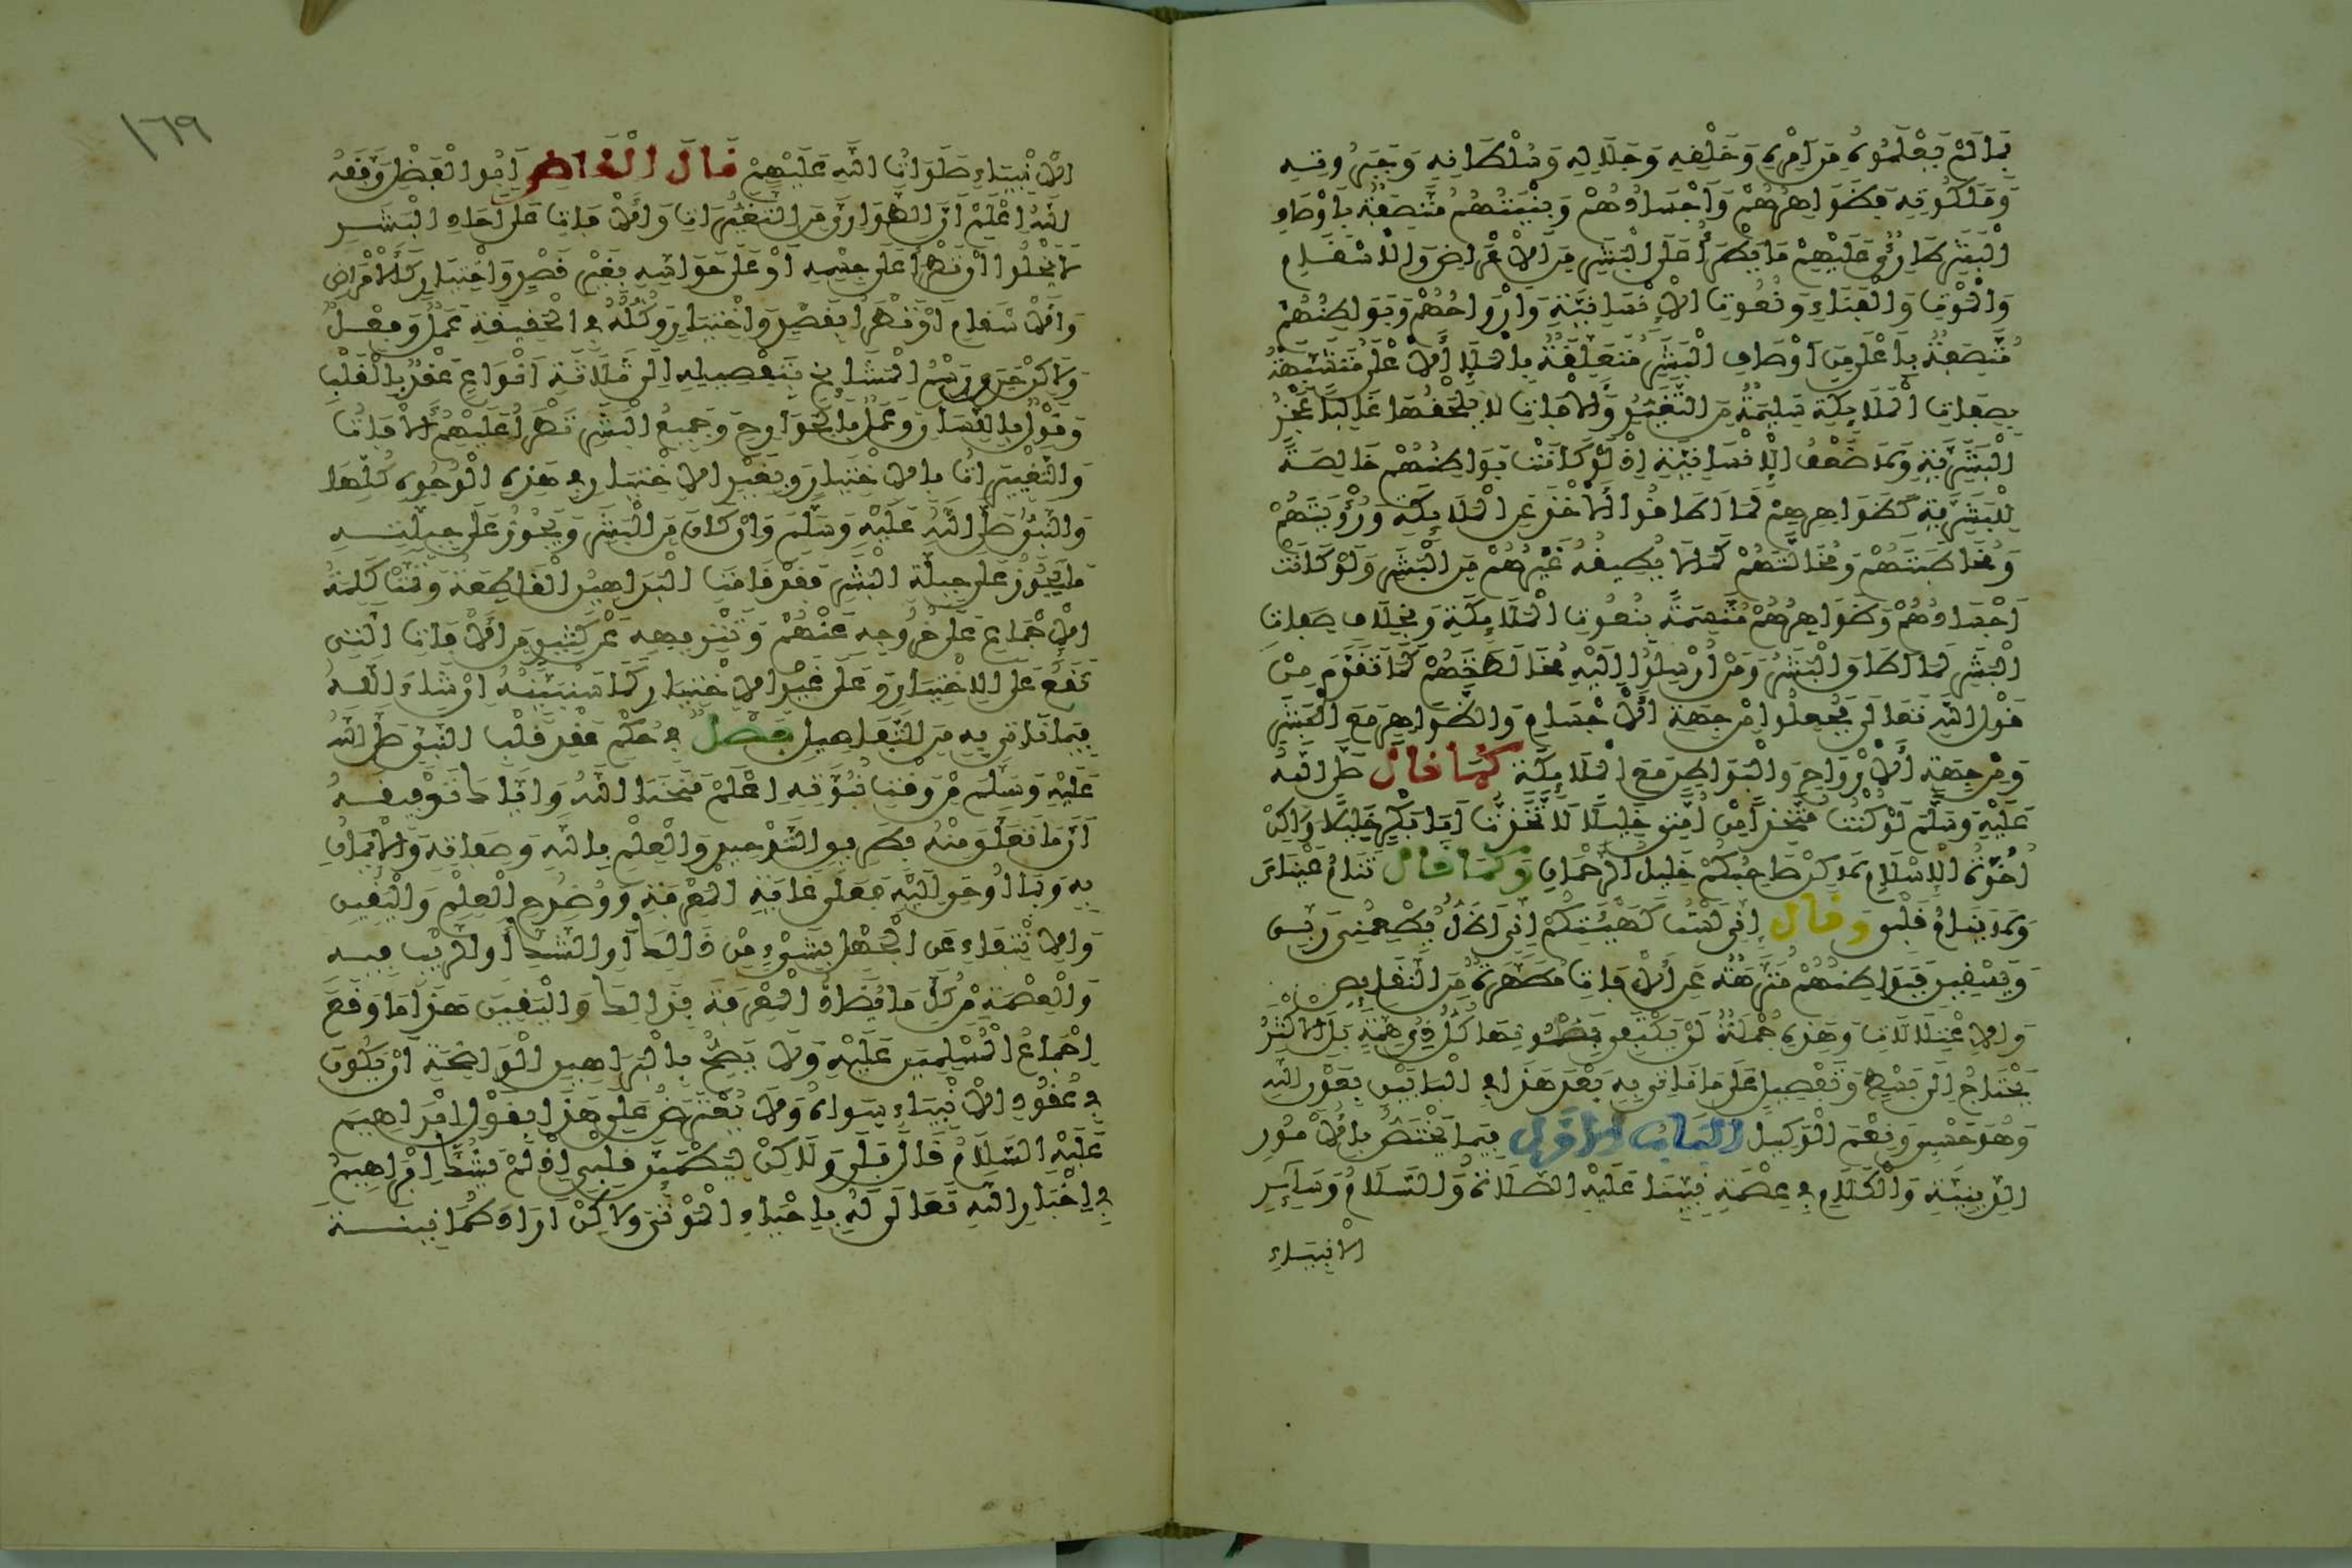 بما لم يعلموه من امره وخلقه وجلاله وسلطانه وجبروته
وملكوته فظواهرهم واجسادهم وبنيتهم متصفة باوصاف
البشر طارئ عليهم ما يطرأ على البشر من الاعراض والاسقام
والموت والفناء ونعوت الانسانية وارواحهم وبواطنهم
متصفة باعلى من اوصاف البشر متعلقة بالملإ الاعلى متشبهة
بصفات الملائكة سليمة من التغير والافات لا يلحقها غالبا عجز
البشرية ولا ضعف الانسانية اذ لو كانت بواطنهم خالصة
للبشرية كظواهرهم لما اطاقوا الاخذ عن الملائكة ورؤيتهم
ومخاطبتهم ومخالتهم كما لا يطيقه غيرهم من البشر ولو كانت
اجسادهم وظواهرهم متسمة بنعوت الملائكة وبخلاف صفات
البشر لما اطاق البشر ومن ارسلوا اليه مخالطتهم كما تقدم من
قول الله تعالى فجعلوا من جهة الاجسام والظواهر مع البشر
ومن جهة الارواح والبواطن مع الملائكة كما قال صلى الله
عليه وسلم لو كنت متخذا من امتي خليلا لاتخذت ابا بكر خليلا ولاكن
اخوة الاسلام لاكن صاحبكم خليل الرحمان وكما قال تنام عيناي
ولا ينام قلبي وقال اني لست كهيئتكم اني اظل يطعمني ربي
ويسقين فبواطنهم منزهة عن الافات مطهرة من النقايص
والاعتلالات وهذه جملة لن يكتفي بمضمونها كل ذي همة بل الاكثر
يحتاج الى بسط وتفصيل على ما ناتي به بعد هذا في البابين بعون الله
وهو حسبي ونعم الوكيل الباب الاول فيما يختص بالامور
الدينية والكلام في عصمة نبينا عليه الصلاة والسلام وساير
الانبياء
١٦٩
الانبياء صلوات الله عليهم قال القاضي ابو الفضل وفقه
الله اعلم ان الطوارئ من التغيرات والافات على احاد البشر
لا يخلوا ان تطرأ على جسمه او على حواسه بغير قصد واختيار كالامراض
والاسقام او تطرأ بقصد واختيار وكله في الحقيقة عمل وفعل
ولاكن جرى رسم المشايخ بتفصيله الى ثلاثة انواع عقد بالقلب
وقول باللسان وعمل بالجوارح وجميع البشر تطرأ عليهم الافات
والتغييرات بالاختيار وبغير الاختيار في هذه الوجوه كلها
والنبي صلى الله عليه وسلم وان كان من البشر ويجوز على جبلته
ما يجوز على جبلة البشر فقد قامت البراهين القاطعة وتمت كلمة
الاجماع على خروجه عنهم وتنزيهه عن كثير من الافات التي
تقع على الاختيار وعلى غير الاختيار كما سنبينه ان شاء الله
فيما ناتي به من التفاصيل فصل في حكم عقد قلب النبي صلى الله
عليه وسلم من وقت نبوته اعلم منحنا الله واياك توفيقه
ان ما تعلق منه بطريق التوحيد والعلم بالله وصفاته والايمان
به وبما اوحي اليه فعلى غاية المعرفة ووضوح العلم واليقين
والانتفاء عن الجهل بشيء من ذالك او الشك او الريب فيه
والعصمة من كل ما يضاد المعرفة بذالك واليقين هذا ما وقع
اجماع المسلمين عليه ولا يصح بالبراهين الواضحة ان يكون
في عقود الانبياء سواه ولا يعترض على هذا بقول ابراهيم
عليه السلام قال بلى ولاكن ليطمئن قلبي اذ لم يشك ابراهيم
في اخبار الله تعالى له باحياء الموتى ولاكن اراد طمانينة